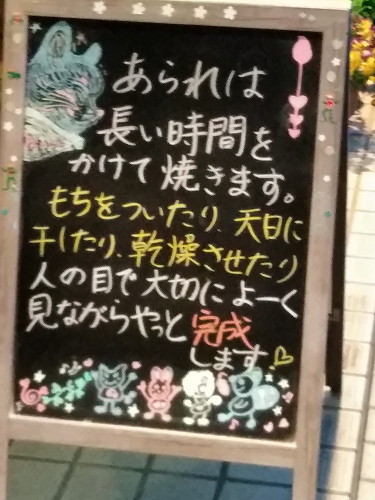 あられは
長い時間を
かけて焼きます。
もちをついたり、天日に
干したり、乾燥させたり
人の目で大切によーく
見ながらやっと完成
します♡